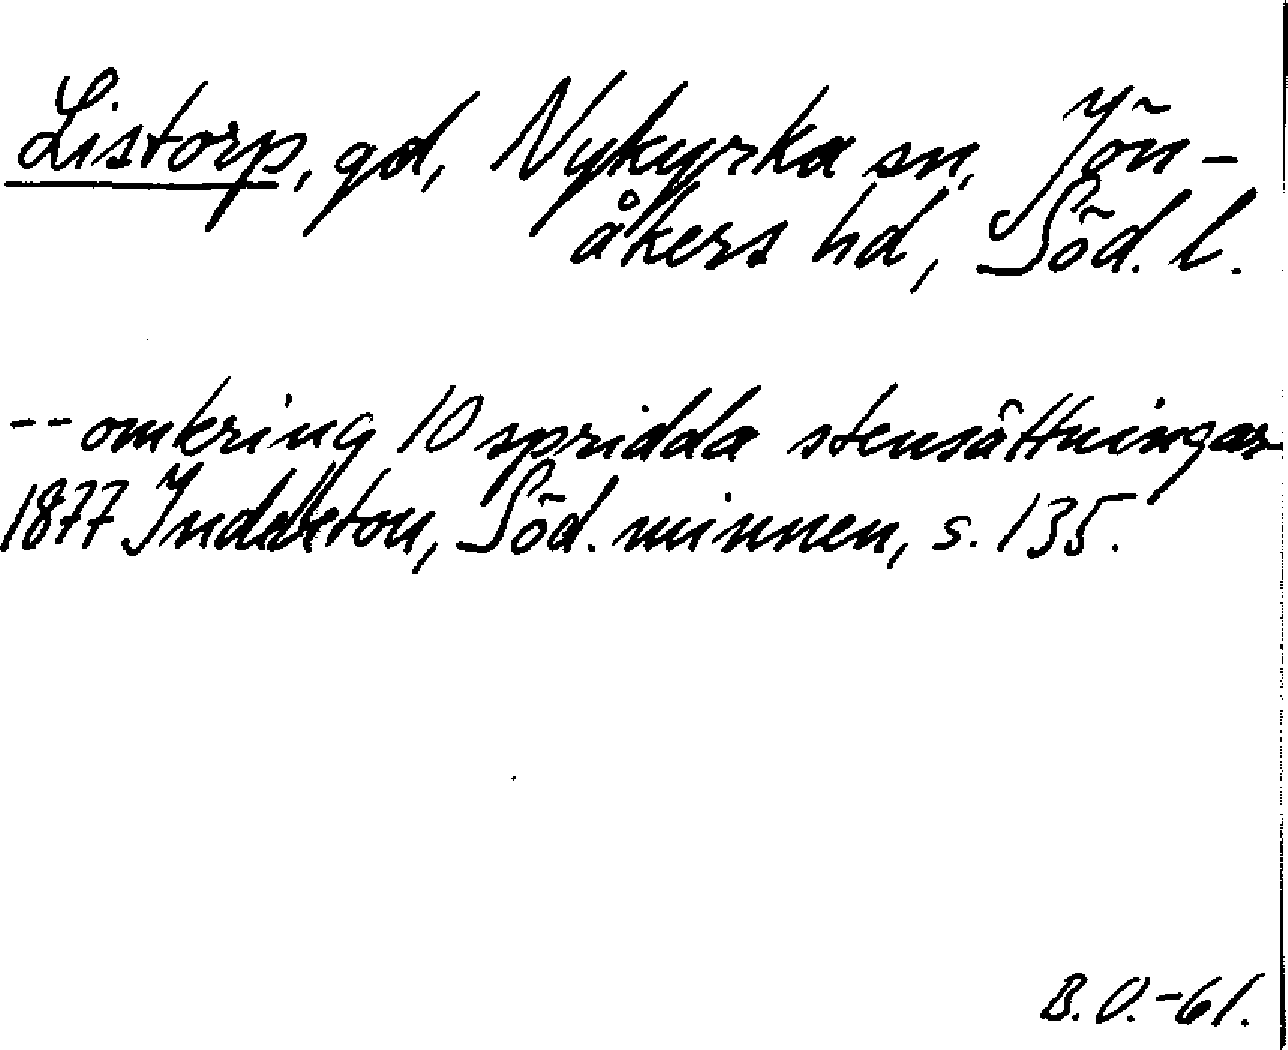 Listorp, gd, Nykyrka sn, Jön-
åkers hd, Söd. l.
-- omkring 10 spridda stensättningar
1877 Indebetou, Söd. minnen, s. 135.
B.O.-61.